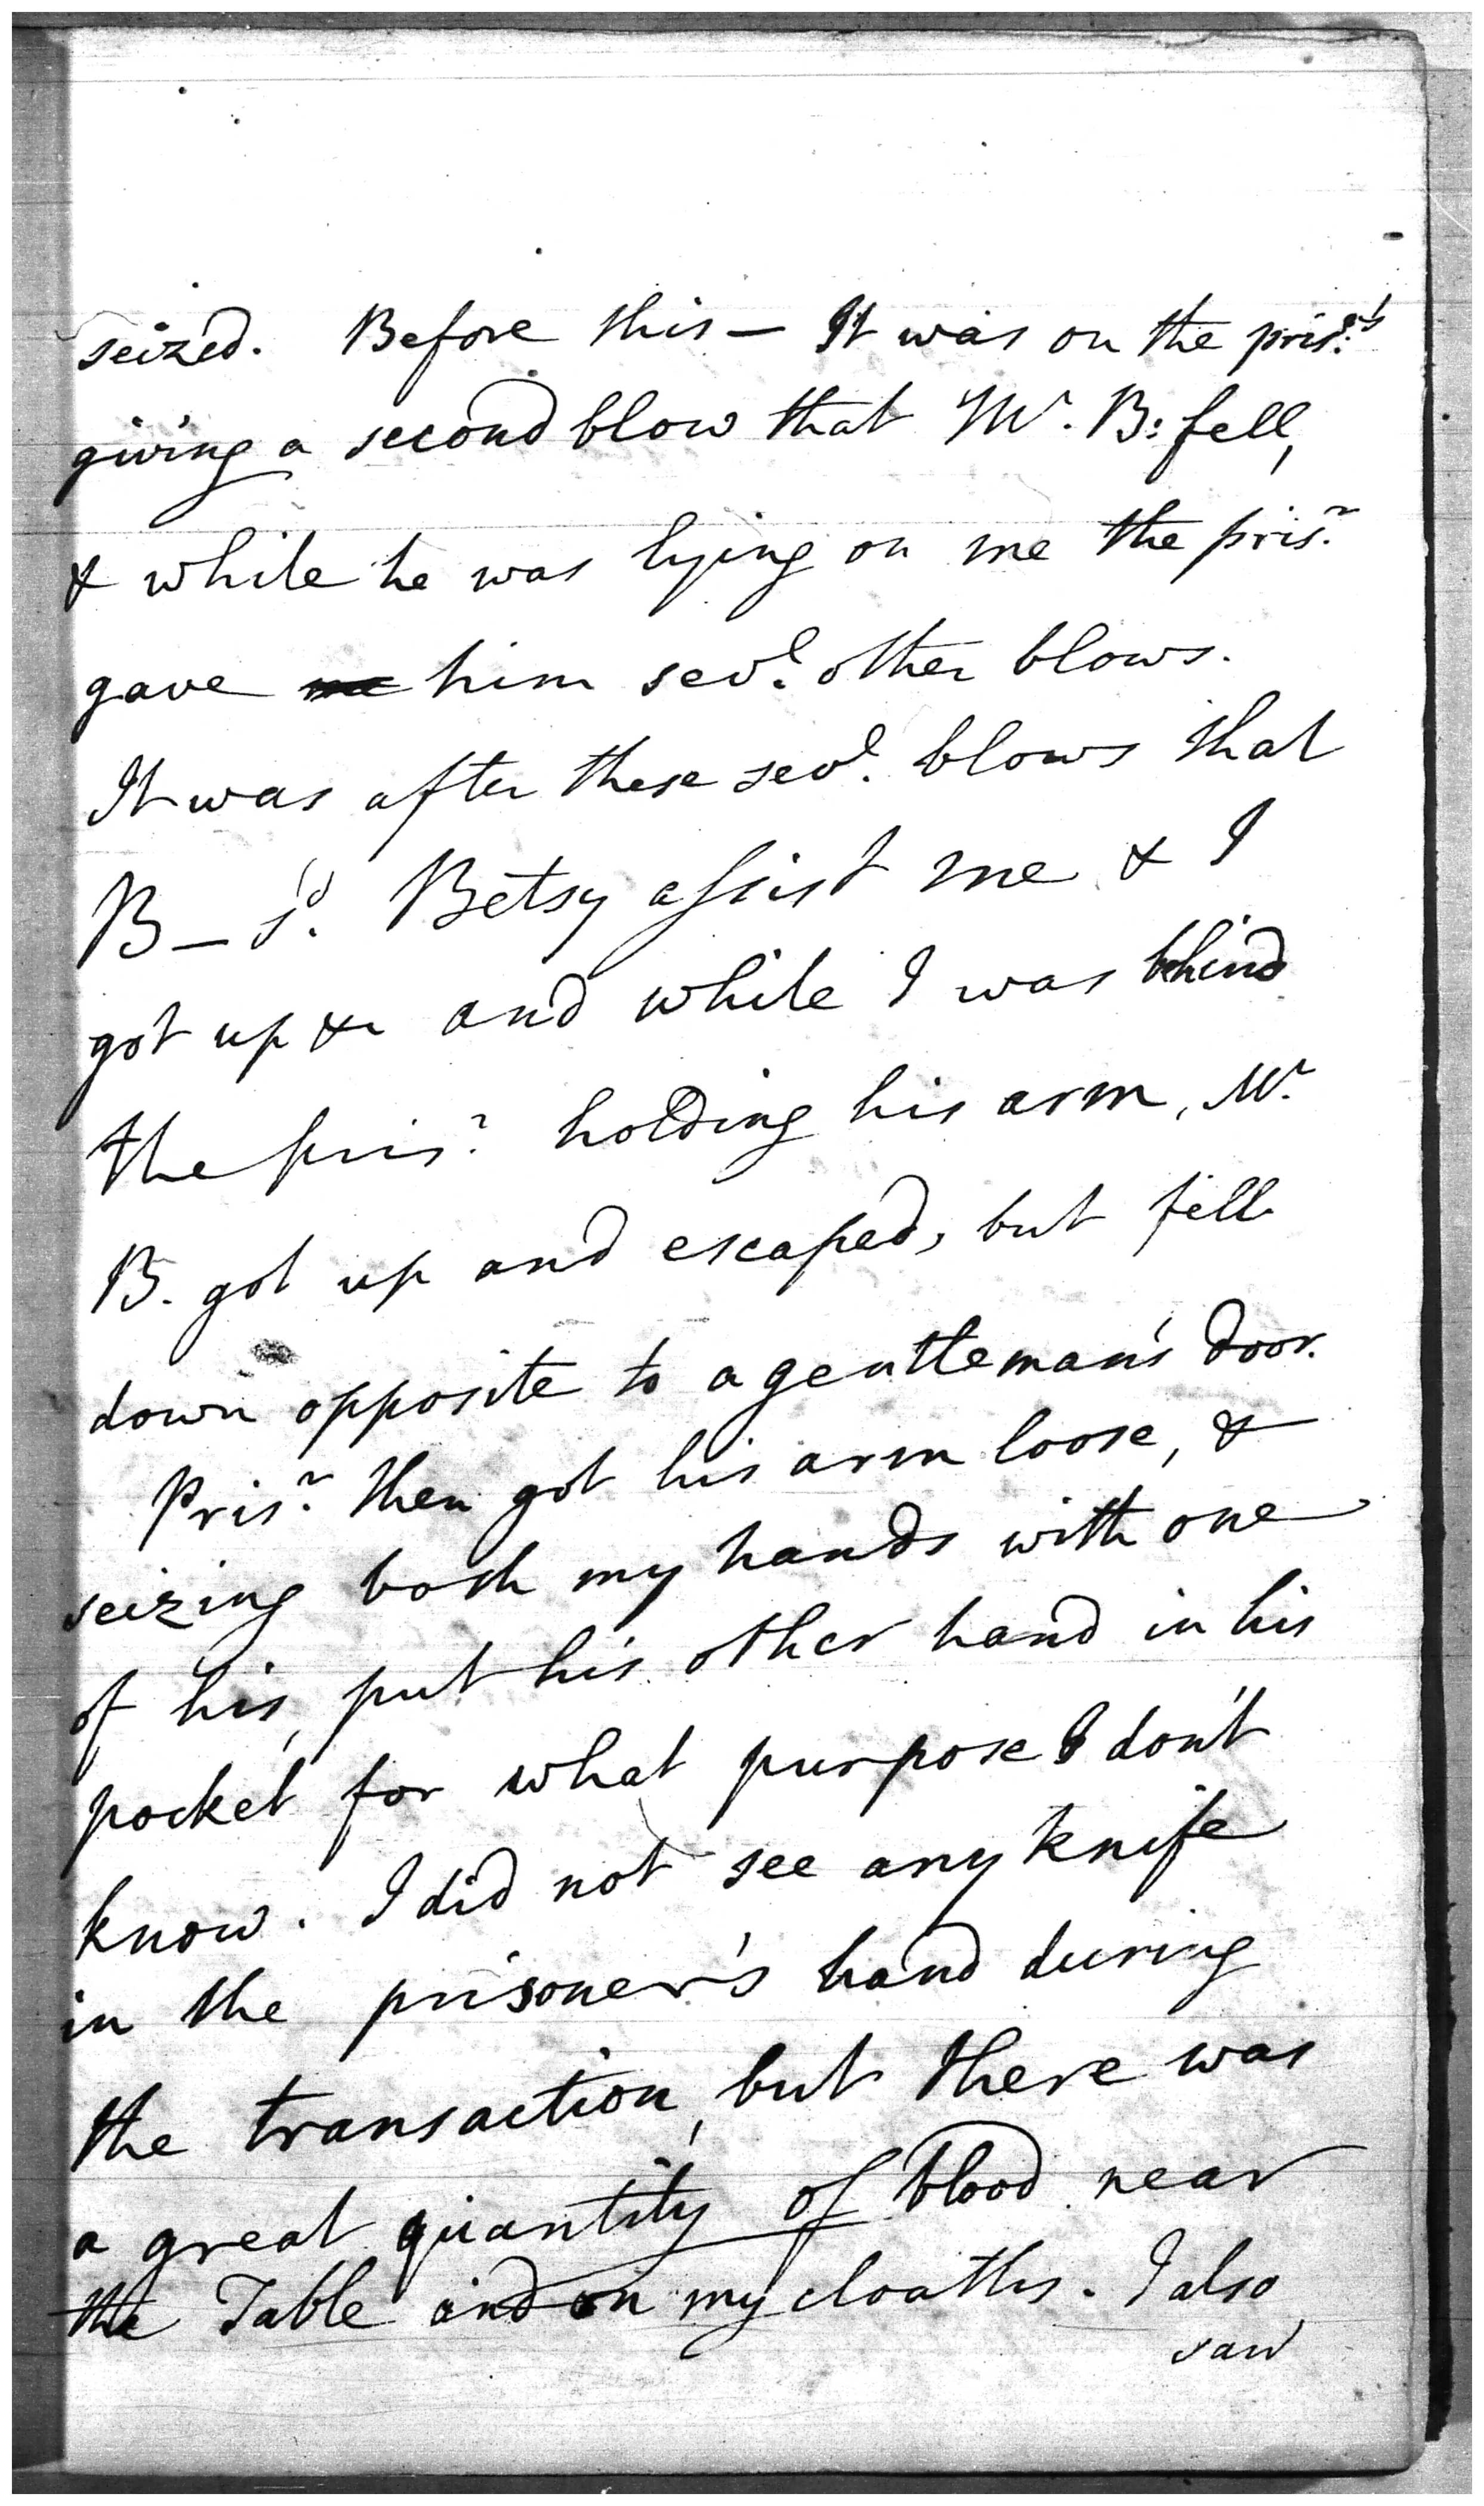 seized. Before this — It was on the pris.rs
giving a second blow that Mr. B: fell,
& while he was lying on me the pris.r
gave me him sev.l other blows.
It was after these sev.l blows that
B— s.d Betsy assist me & I
got up & and while I was behind
the pris.r holding his arm, Mr.
B. got up and escaped, but fell
down opposite to a gentleman's door.
Pris.r then got his arm loose, &
seizing both my hands with one
of his, put his other hand in his
pocket for what purpose I don't
know. I did not see any knife
in the prisoner's hand during
the transaction, but there was
a great quantity of blood near
the Table and on my cloaths. I also
saw